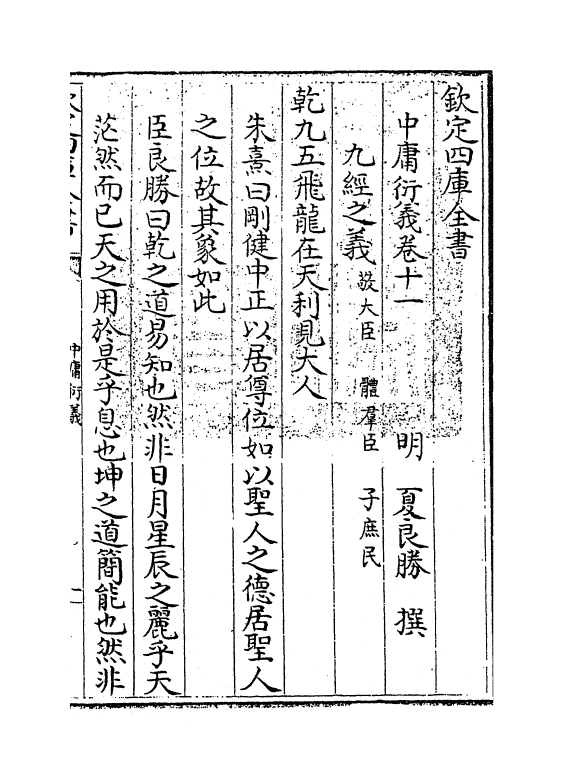 欽定四庫全書
中庸衍義卷十一　　　明　夏良勝　撰
九經之義　敬大臣　體羣臣　子庶民
乾九五飛龍在天利見大人
朱熹曰剛健中正以居尊位如以聖人之德居聖人
之位故其象如此
臣良勝曰乾之道易知也然非日月星辰之麗乎天
茫然而已天之用於是乎息也坤之道簡能也然非
中庸衍義
一